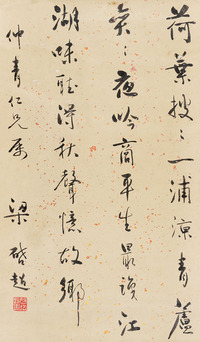 荷葉披〻一浦涼青蘆
奕〻夜吟商平生最識江
湖味聽得秋聲憶故鄉
仲青仁兄屬 梁啟超